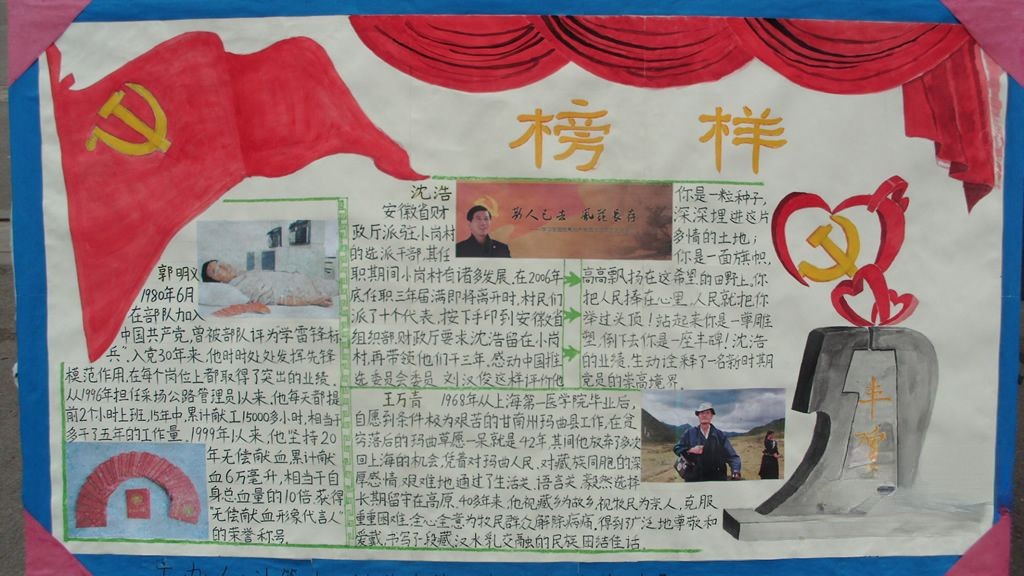 榜 样
郭明义
1980年6月
在部队加入
中国共产党,曾被部队评为学雷锋标
兵。入党30年来,他时时处处发挥先锋
模范作用,在每个岗位上都取得了突出的业绩。
从1996年担任采场公路管理员以来,他每天都提
前2个小时上班,15年中,累计献工15000多小时,相当于
多干了五年的工作量。1999年以来,他坚持20
年无偿献血累计献
血6万毫升,相当于自
身总血量的10倍获得
"无偿献血形象代言人"
的荣誉称号。
沈浩
安徽省财
政厅派驻小岗村
的选派干部,其任
职期间小岗村自诸多发展,在2006年
底任职三年届满即将离开时,村民们
派了十个代表,按下手印到安徽省
组织部财政厅要求沈浩留在小岗
村,再带领他们干三年,感动中国推
选委员会委员刘汉俊这样评价他
斯人已去 风范长存
你是一粒种子,
深深埋进这片
多情的土地;
你是一面旗帜,
高高飘扬在这希望的田野上。你
把人民捧在心里,人民就把你
举过头顶!站起来你是一尊雕
塑,倒下去你是一座丰碑!沈浩
的业绩,生动诠释了一名新时期
党员的崇高境界。
王万青 1968年从上海第一医学院毕业后,
自愿到条件极为艰苦的甘南州玛曲县工作,在定
穷落后的玛曲草原一呆就是42年,其间他放弃了多次
回上海的机会,凭着对玛曲人民、对藏族同胞的深
厚感情,艰难地通过了生活关、语言关,毅然选择
长期留守在高原,40多年来,他视藏乡为故乡,视牧民为亲人,克服
重重困难,全心全意为牧民群众解除病痛,得到了广泛地尊敬和
爱戴,书写了段藏汉水乳交融的民族团结佳话。
丰碑